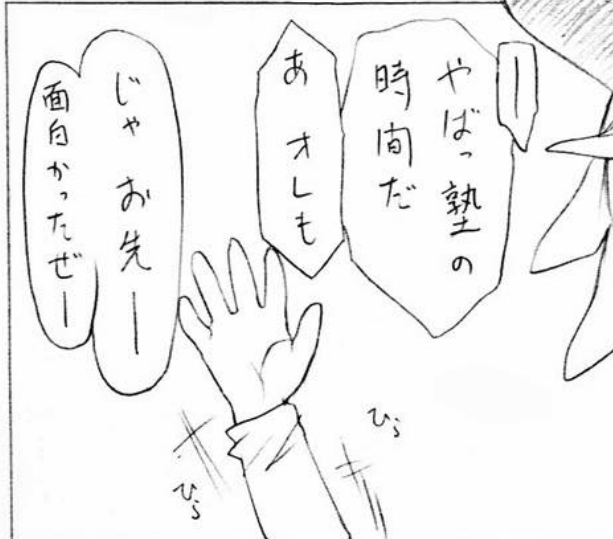 ー
やばっ塾の
時間だ
あ オレも
じゃ お先ー
面白かったぜー
ひら
ひら